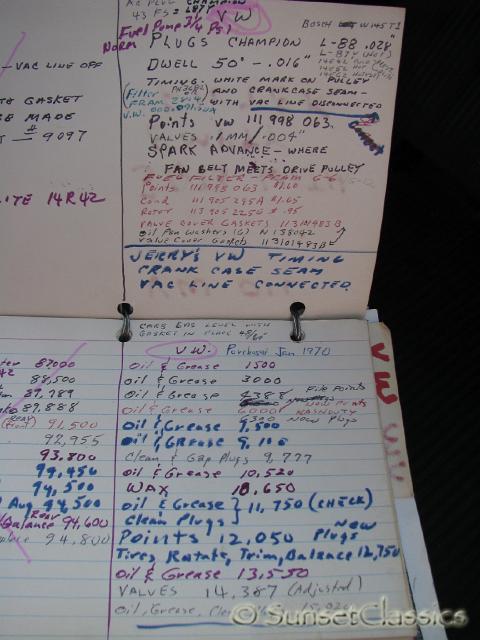 VAC LINE OFF
GASKET
MADE
# 9097
ITE 14R42
43 FS = L87Y VW
Fuel Pump 3/4 PSI
Norm PLUGS CHAMPION L-88 .028"
DWELL 50° - .016"
TIMING - WHITE MARK ON PULLEY
AND CRANKCASE SEAM -
WITH VAC LINE DISCONNECTED
Filter
FRAM
V.W.
Points VW 111 998 063
VALVES .1MM/.004"
SPARK ADVANCE - WHERE
FAN BELT MEETS DRIVE PULLEY
FUEL FILTER - FRAM G-6
Points 111 998 063 $1.60
Cond 111 905 295A $1.65
Rotor 113 905 225G $.95
VALVE COVER GASKETS 113101483B
Oil Pan Washers (6) N 138042
Valve Cover Gaskets 113101483B
JERRY'S VW TIMING
CRANK CASE SEAM
VAC LINE CONNECTED
CARB GAS LEVEL WITH
GASKET IN PLACE
VW
87000
88,500
89,789
89,888
91,500
92,955
93,800
94,450
94,500
Aug 94,500
Rear
Balance 94,600
94,800
V.W. Purchased Jan 1970
Oil & Grease 1500
Oil & Grease 3000
Oil & Grease 4388 File Points
Oil & Grease 6000 New Points
New Plugs
Oil & Grease 7,500
Oil & Grease 9,100
Clean & Gap Plugs 9,777
Oil & Grease 10,520
WAX 10,650
Oil & Grease } 11,750 (CHECK)
Clean Plugs
Points 12,050 New Plugs
Tires Rotate, Trim, Balance 12,750
Oil & Grease 13,550
VALVES 14,387 (Adjusted)
Oil, Grease,
© SunsetClassics